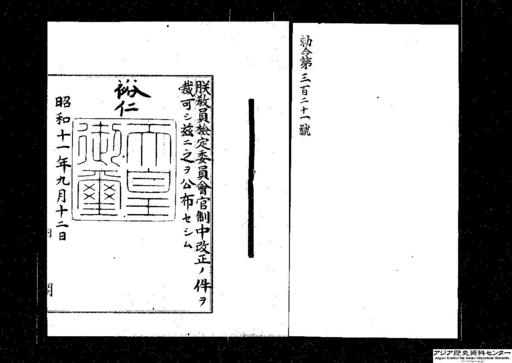 勅令第三百二十一號
朕敎員檢定委員會官制中改正ノ件ヲ
裁可シ玆ニ之ヲ公布セシム
裕仁
天皇
御璽
昭和十一年九月十二日
アジア歴史資料センター
Japan Center for Asian Historical Records